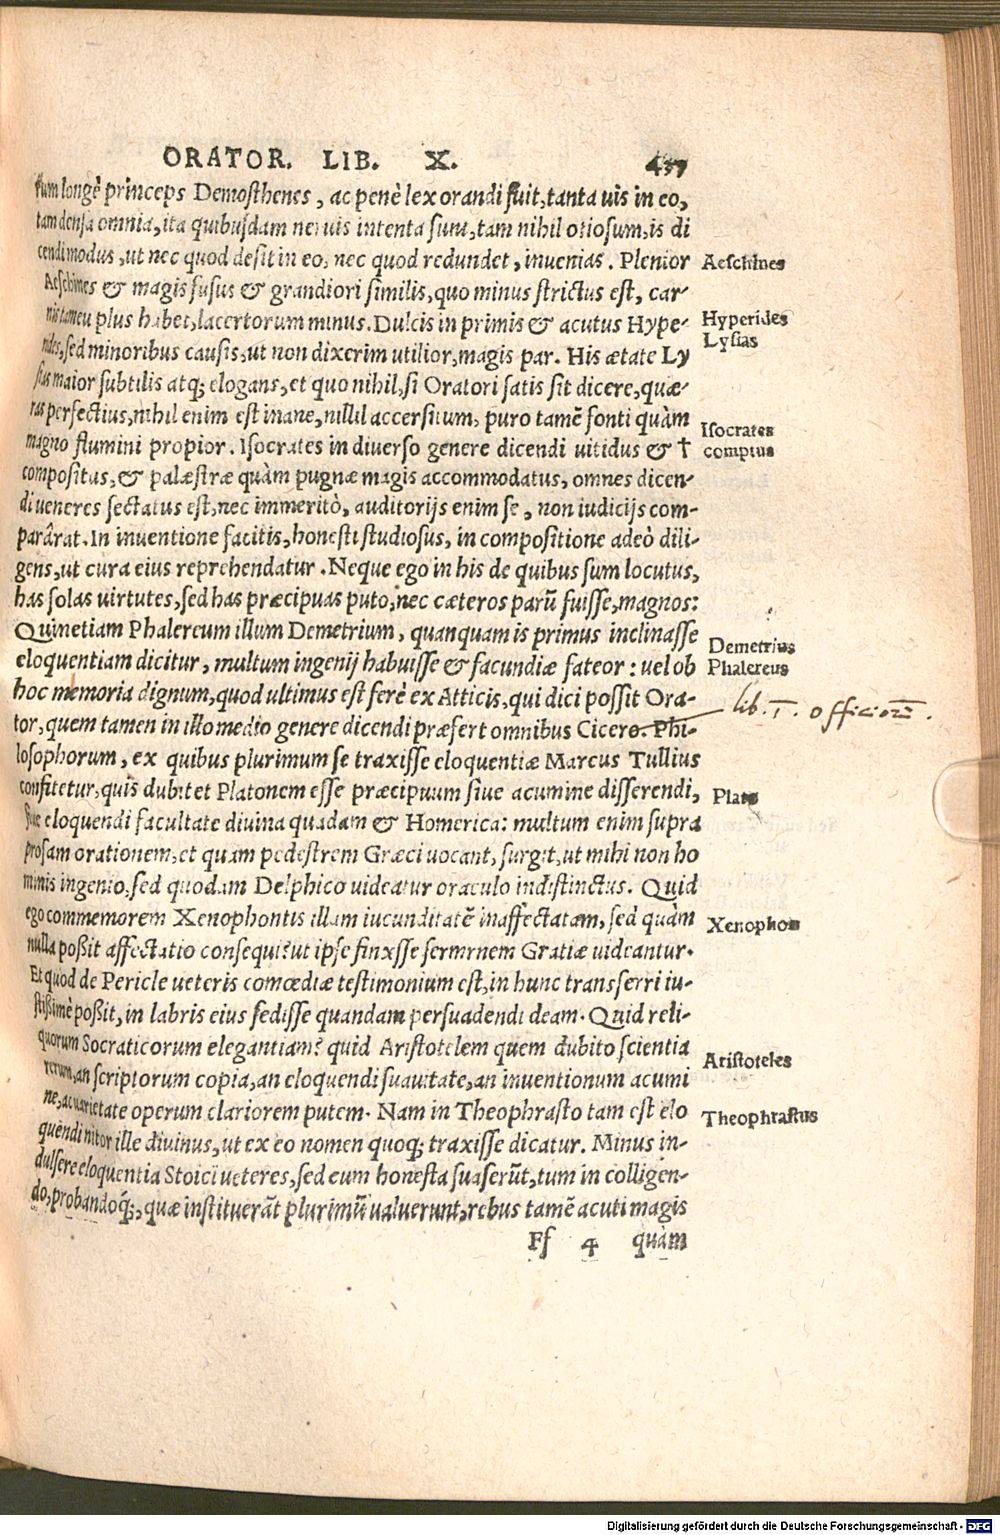 ORATOR. LIB. X. 457
rum longè princeps Demosthenes, ac penè lex orandi fuit, tanta uis in eo,
tam densa omnia, ita quibusdam neruis intenta sunt, tam nihil otiosum, is di
cendi modus, ut nec quod desit in eo, nec quod redundet, inuenias. Plenior
Aeschines
Aeschines & magis fusus & grandiori similis, quo minus strictus est, car-
nis tamen plus habet, lacertorum minus. Dulcis in primis & acutus Hype-
Hyperides
rides, sed minoribus causis, ut non dixerim utilior, magis par. His ætate Ly
Lysias
sias maior subtilis atq; elogans, et quo nihil, si Oratori satis sit dicere, quæ-
ras perfectius, nihil enim est inane, nihil accersitum, puro tamē fonti quàm
magno flumini propior. Isocrates in diuerso genere dicendi nitidus & †
Isocrates
comptus
compositus, & palæstræ quàm pugnæ magis accommodatus, omnes dicen-
di ueneres sectatus est, nec immeritò, auditorijs enim se, non iudicijs com-
parârat. In inuentione facilis, honesti studiosus, in compositione adeò dili-
gens, ut cura eius reprehendatur. Neque ego in his de quibus sum locutus,
has solas uirtutes, sed has præcipuas puto, nec cæteros parū fuisse, magnos:
Quinetiam Phalereum illum Demetrium, quanquam is primus inclinasse
Demetrius
eloquentiam dicitur, multum ingenij habuisse & facundiæ fateor: uel ob
Phalereus
hoc memoria dignum, quod ultimus est ferè ex Atticis, qui dici possit Ora-
tor, quem tamen in illo medio genere dicendi præfert omnibus Cicero. Phi-
lib. I. officiorū.
losophorum, ex quibus plurimum se traxisse eloquentiæ Marcus Tullius
confitetur, quis dubitet Platonem esse præcipuum siue acumine disserendi,
Plato
siue eloquendi facultate diuina quadam & Homerica: multum enim supra
prosam orationem, et quam pedestrem Græci uocant, surgit, ut mihi non ho
minis ingenio, sed quodam Delphico uideatur oraculo indistinctus. Quid
ego commemorem Xenophontis illam iucunditatē inaffectatam, sed quàm
Xenophon
nulla poßit affectatio consequi? ut ipse finxsse sermrnem Gratiæ uideantur.
Et quod de Pericle ueteris comœdiæ testimonium est, in hunc transferri iu-
stißimè poßit, in labris eius sedisse quandam persuadendi deam. Quid reli-
quorum Socraticorum elegantiam? quid Aristotelem quem dubito scientia
Aristoteles
rerum, an scriptorum copia, an eloquendi suauitate, an inuentionum acumi
ne, ac uarietate operum clariorem putem. Nam in Theophrasto tam est elo
Theophrastus
quendi nitor ille diuinus, ut ex eo nomen quoq; traxisse dicatur. Minus in-
dulsere eloquentia Stoici ueteres, sed eum honesta suaserūt, tum in colligen-
do, probandoq́;, quæ instituerāt plurimū ualuerunt, rebus tamē acuti magis
Ff 4 quàm
Digitalisierung gefördert durch die Deutsche Forschungsgemeinschaft - DFG